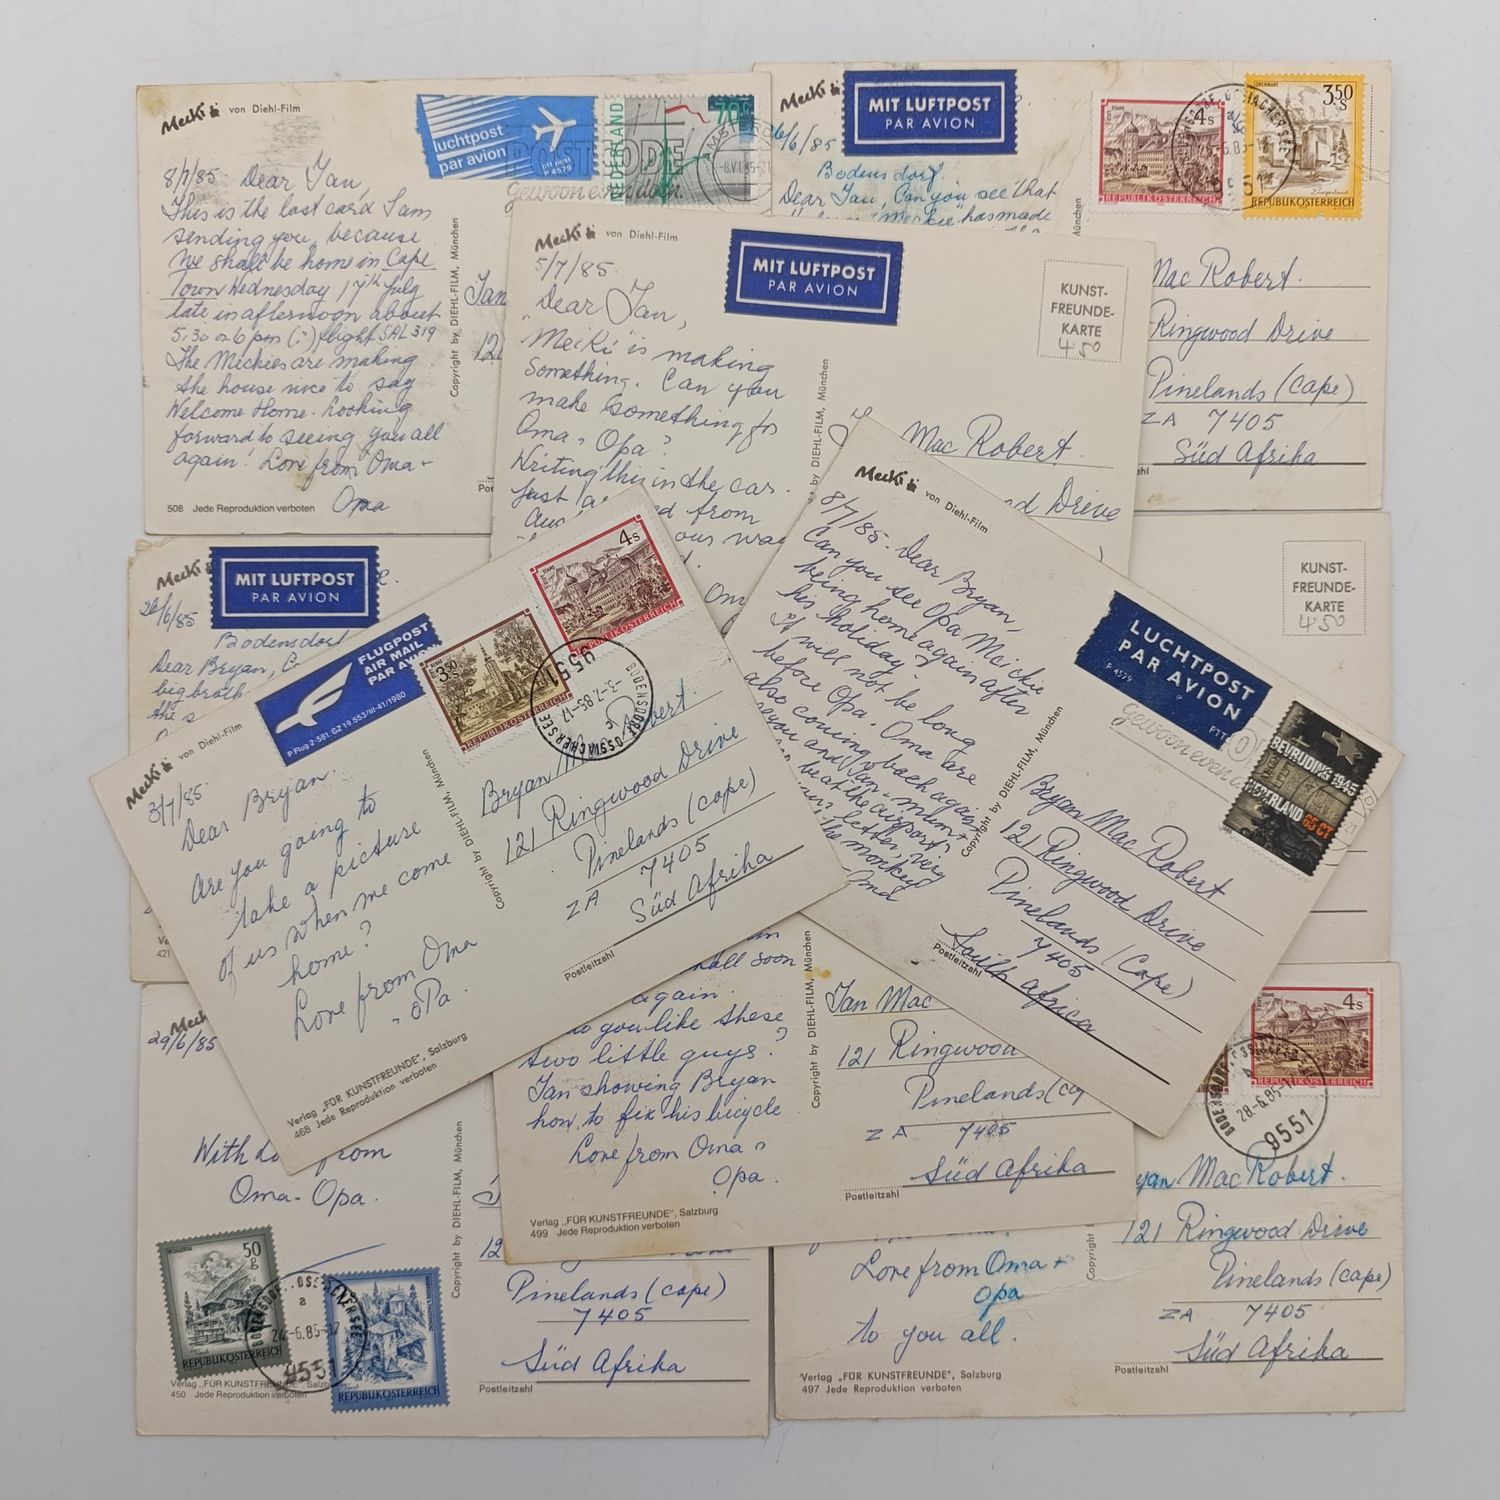 Mecki von Diehl-Film
8/7/85. Dear Ian,
This is the last card I am
sending you, because
we shall be home in Cape
Town Wednesday 17th July
late in afternoon about
5.30 or 6 pm (:) flight SAL 319
The Meckies are making
the house nice to say
Welcome Home. Looking
forward to seeing you all
again! Love from Oma +
Opa
508 Jede Reproduktion verboten
Copyright by DIEHL-FILM, München
luchtpost
par avion
ptt post
P 4579
POSTCODE
gewoon even doen.
NEDERLAND
70c
Ian
121
Mecki
MIT LUFTPOST
PAR AVION
26/6/85
Bodensdorf.
Dear Ian, Can you see that
"Meckie" has made
STAMS
4s
REPUBLIK ÖSTERREICH
3.50
S
REPUBLIK ÖSTERREICH
Mac Robert.
Ringwood Drive
Pinelands (Cape)
ZA 7405
Süd Afrika
Mecki von Diehl-Film
5/7/85.
Dear Ian,
Mecki is making
something. Can you
make something for
Oma + Opa?
Writing this in the car.
Just
from
MIT LUFTPOST
PAR AVION
KUNST-
FREUNDE-
KARTE
4.50
by DIEHL-FILM, München
Mac Robert.
Drive
Mecki
MIT LUFTPOST
PAR AVION
26/6/85
Bodensdorf
Dear Bryan,
big broth
421
KUNST-
FREUNDE-
KARTE
4.50
Mecki von Diehl-Film
3/7/85
Dear Bryan.
Are you going to
take a picture
of us when we come
home?
Love from Oma
+ oPa.
Verlag „FÜR KUNSTFREUNDE", Salzburg
468 Jede Reproduktion verboten
Copyright by DIEHL-FILM, München
FLUGPOST
AIR MAIL
PAR AVION
P.Flug 2-581/GZ 19.553/III-41/1980
3.50
REPUBLIK ÖSTERREICH
STAMS
4s
REPUBLIK ÖSTERREICH
9551
BODENSDORF, OSSIACHERSEE
-3.-7.85-17
Bryan Mac Robert.
121 Ringwood Drive
Pinelands (Cape)
ZA 7405
Süd Afrika
Postleitzahl
Mecki von Diehl-Film
8/7/85. Dear Bryan,
Can you see Opa Meickie
being home again after
his holiday?
It will not be long
before Opa + Oma are
also coming back again
you and Ian. Mum +
be at the airport,
letter, very
the monkey
LUCHTPOST
PAR AVION
P 4579
PTT
gewoon even
BEVRIJDING 1945
NEDERLAND 65 CT
Copyright by DIEHL-FILM, München
Bryan Mac Robert
121 Ringwood Drive
Pinelands (Cape)
7405
South Africa
Postleitzahl
shall soon
again.
you like these
two little guys?
Ian showing Bryan
how to fix his bicycle
Love from Oma +
Opa.
Verlag „FÜR KUNSTFREUNDE", Salzburg
499 Jede Reproduktion verboten
Copyright by DIEHL-FILM, München
Ian Mac
121 Ringwood
Pinelands
ZA 7405
Süd Afrika
Postleitzahl
Meck
29/6/85
With from
Oma - Opa.
50
g
REPUBLIK ÖSTERREICH
REPUBLIK ÖSTERREICH
9551
Verlag „FÜR KUNSTFREUNDE", Salzb
450 Jede Reproduktion verboten
Copyright by DIEHL-FILM, München
Pinelands (Cape)
7405
Süd Afrika
Postleitzahl
STAMS
4s
REPUBLIK ÖSTERREICH
28.-6.85-17
9551
yan Mac Robert.
121 Ringwood Drive
Pinelands (Cape)
ZA 7405
Süd Afrika
Postleitzahl
Love from Oma +
Opa
to you all.
Verlag „FÜR KUNSTFREUNDE", Salzburg
497 Jede Reproduktion verboten
Copyright by